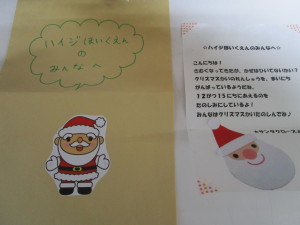 ハイジほいくえん
の
みんなへ
☆ハイジほいくえんのみんなへ☆
こんにちは!
さむくなってきたが、かぜはひいてないかい?
クリスマスかいのれんしゅうも、まいにち
がんばっているようだね。
12がつ15にちにあえるのを
たのしみにしているよ!
みんなもクリスマスかいたのしんでね♪
サンタクロースより